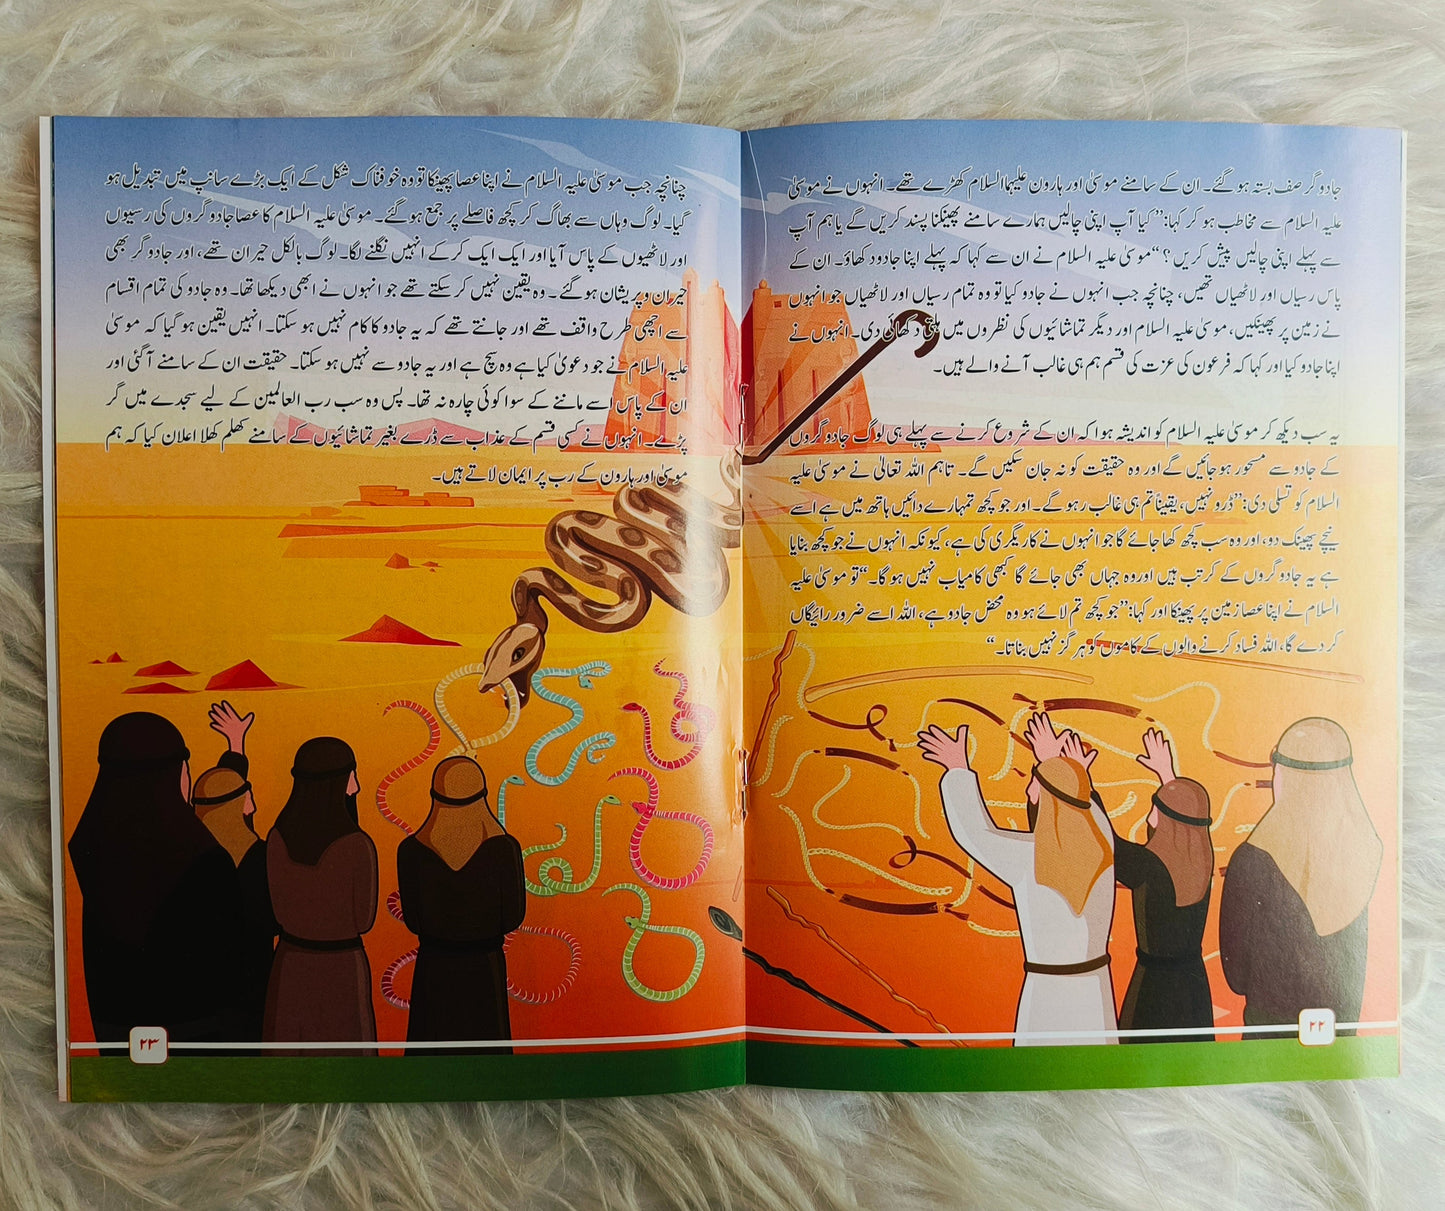 جادوگر صف بستہ ہو گئے۔ ان کے سامنے موسیٰ اور ہارون علیہما السلام کھڑے تھے۔ انہوں نے موسیٰ
علیہ السلام سے مخاطب ہو کر کہا: ”کیا آپ اپنی چالیں ہمارے سامنے پھینکنا پسند کریں گے یا ہم آپ
سے پہلے اپنی چالیں پیش کریں؟“ موسیٰ علیہ السلام نے ان سے کہا کہ پہلے اپنا جادو دکھاؤ۔ ان کے
پاس رسیاں اور لاٹھیاں تھیں، چنانچہ جب انہوں نے جادو کیا تو وہ تمام رسیاں اور لاٹھیاں جو انہوں
نے زمین پر پھینکیں، موسیٰ علیہ السلام اور دیگر تماشائیوں کی نظروں میں ہلتی دکھائی دی۔ انہوں نے
اپنا جادو کیا اور کہا کہ فرعون کی عزت کی قسم ہم ہی غالب آنے والے ہیں۔
یہ سب دیکھ کر موسیٰ علیہ السلام کو اندیشہ ہوا کہ ان کے شروع کرنے سے پہلے ہی لوگ جادوگروں
کے جادو سے مسحور ہو جائیں گے اور وہ حقیقت کو نہ جان سکیں گے۔ تاہم اللہ تعالیٰ نے موسیٰ علیہ
السلام کو تسلی دی: ”ڈرو نہیں، یقیناً تم ہی غالب رہو گے۔ اور جو کچھ تمہارے دائیں ہاتھ میں ہے اسے
نیچے پھینک دو، اور وہ سب کچھ کھا جائے گا جو انہوں نے کاریگری کی ہے، کیونکہ انہوں نے جو کچھ بنایا
ہے یہ جادوگروں کے کرتب ہیں اور وہ جہاں بھی جائے گا کبھی کامیاب نہیں ہو گا۔“ تو موسیٰ علیہ
السلام نے اپنا عصا زمین پر پھینکا اور کہا: ”جو کچھ تم لائے ہو وہ محض جادو ہے، اللہ اسے ضرور رائیگاں
کر دے گا، اللہ فساد کرنے والوں کے کاموں کو ہر گز نہیں بناتا۔“
۲۲
چنانچہ جب موسیٰ علیہ السلام نے اپنا عصا پھینکا تو وہ خوفناک شکل کے ایک بڑے سانپ میں تبدیل ہو
گیا۔ لوگ وہاں سے بھاگ کر کچھ فاصلے پر جمع ہو گئے۔ موسیٰ علیہ السلام کا عصا جادوگروں کی رسیوں
اور لاٹھیوں کے پاس آیا اور ایک ایک کر کے انہیں نگلنے لگا۔ لوگ بالکل حیران تھے، اور جادوگر بھی
حیران و پریشان ہو گئے۔ وہ یقین نہیں کر سکتے تھے جو انہوں نے ابھی دیکھا تھا۔ وہ جادو کی تمام اقسام
سے اچھی طرح واقف تھے اور جانتے تھے کہ یہ جادو کا کام نہیں ہو سکتا۔ انہیں یقین ہو گیا کہ موسیٰ
علیہ السلام نے جو دعویٰ کیا ہے وہ سچ ہے اور یہ جادو سے نہیں ہو سکتا۔ حقیقت ان کے سامنے آ گئی اور
ان کے پاس اسے ماننے کے سوا کوئی چارہ نہ تھا۔ پس وہ سب رب العالمین کے لیے سجدے میں گر
پڑے۔ انہوں نے کسی قسم کے عذاب سے ڈرے بغیر تماشائیوں کے سامنے کھلم کھلا اعلان کیا کہ ہم
موسیٰ اور ہارون کے رب پر ایمان لاتے ہیں۔
۲۳